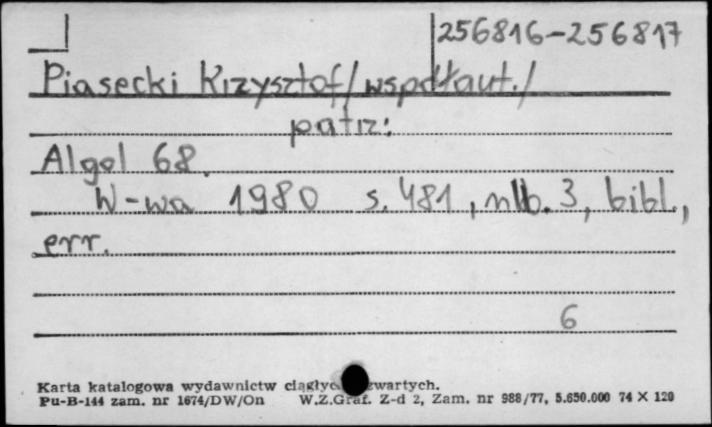 256816-256817
Piasecki Krzysztof/współaut./
patrz:
Algol 68.
W-wa 1980 s. 481, nlb. 3, bibl.,
err.
6
Karta katalogowa wydawnictw zwartych.
Pu-B-144 zam. nr 1674/DW/On W.Z.Graf. Z-d 2, Zam. nr 988/77, 5.650.000 74 X 120